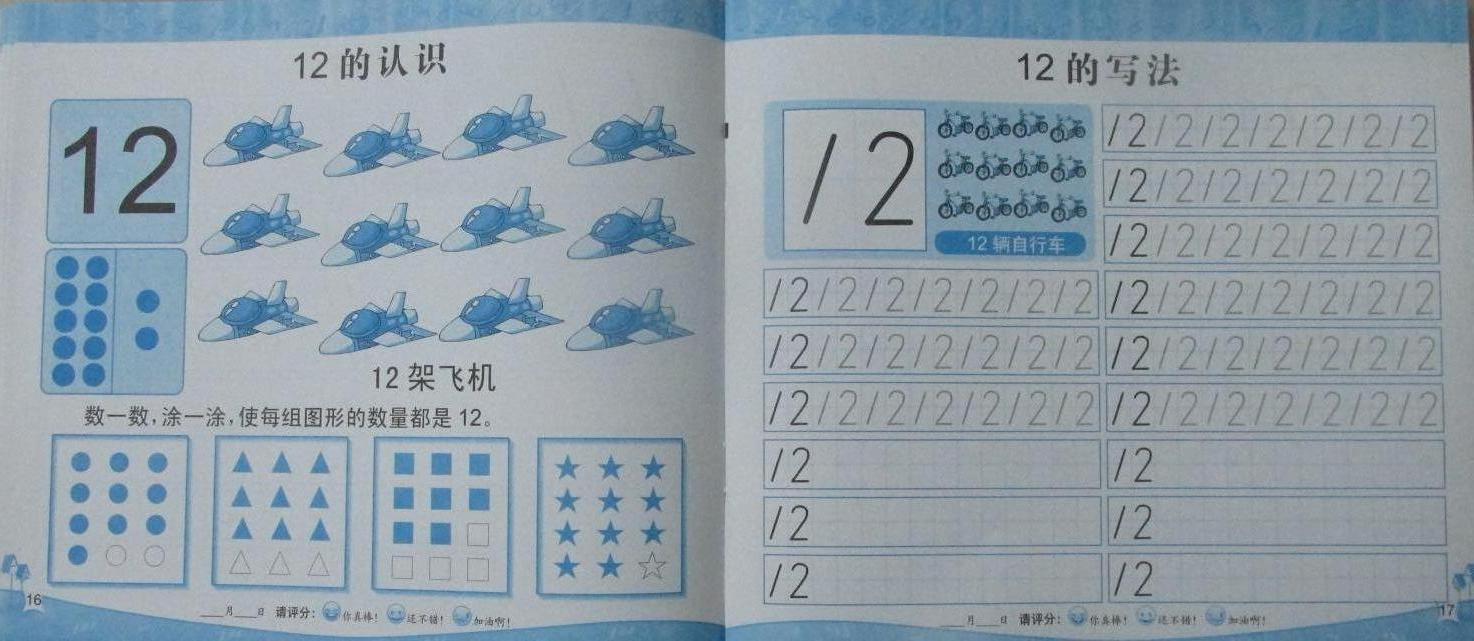 12的认识
12
12架飞机
数一数,涂一涂,使每组图形的数量都是12。
____月____日 请评分: 你真棒! 还不错! 加油啊!
16
12的写法
12
12辆自行车
12 12 12 12 12 12 12
12 12 12 12 12 12 12
12 12 12 12 12 12 12
12 12 12 12 12 12 12
12 12 12 12 12 12 12
12 12 12 12 12 12 12
12 12 12 12 12 12 12
12 12 12 12 12 12 12
12 12 12 12 12 12 12
12
12
12
12
12
12
____月____日 请评分: 你真棒! 还不错! 加油啊!
17